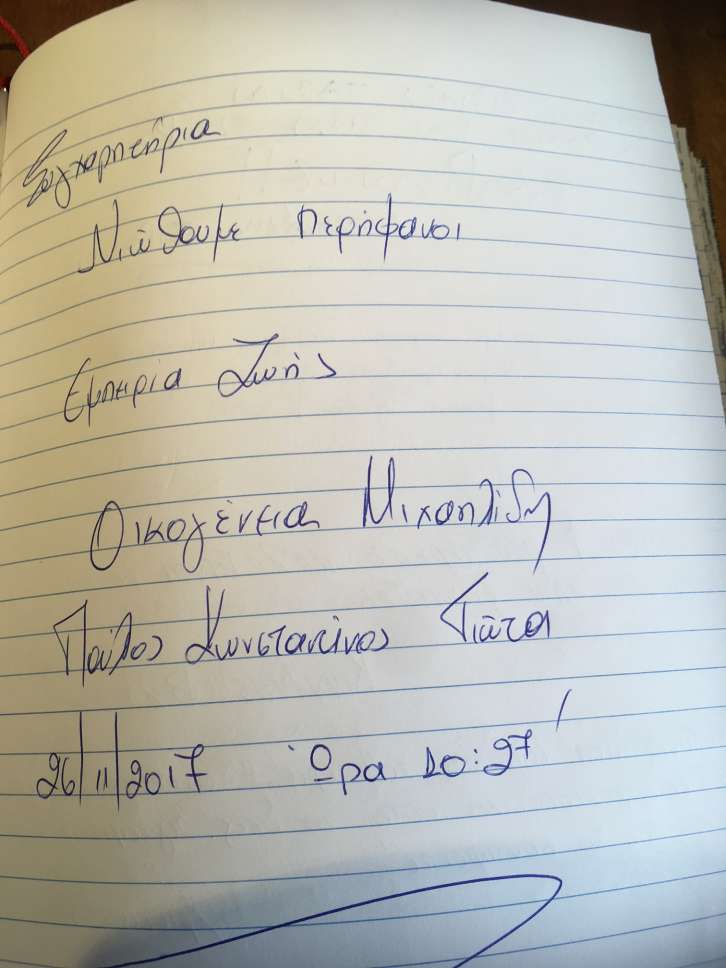 Συγχαρητήρια
Νιώθουμε περήφανοι
Εμπειρία Ζωής
Οικογένεια Μιχαηλίδη
Παύλος Κωνσταντίνος
26/11/2017 Ώρα 10:27'